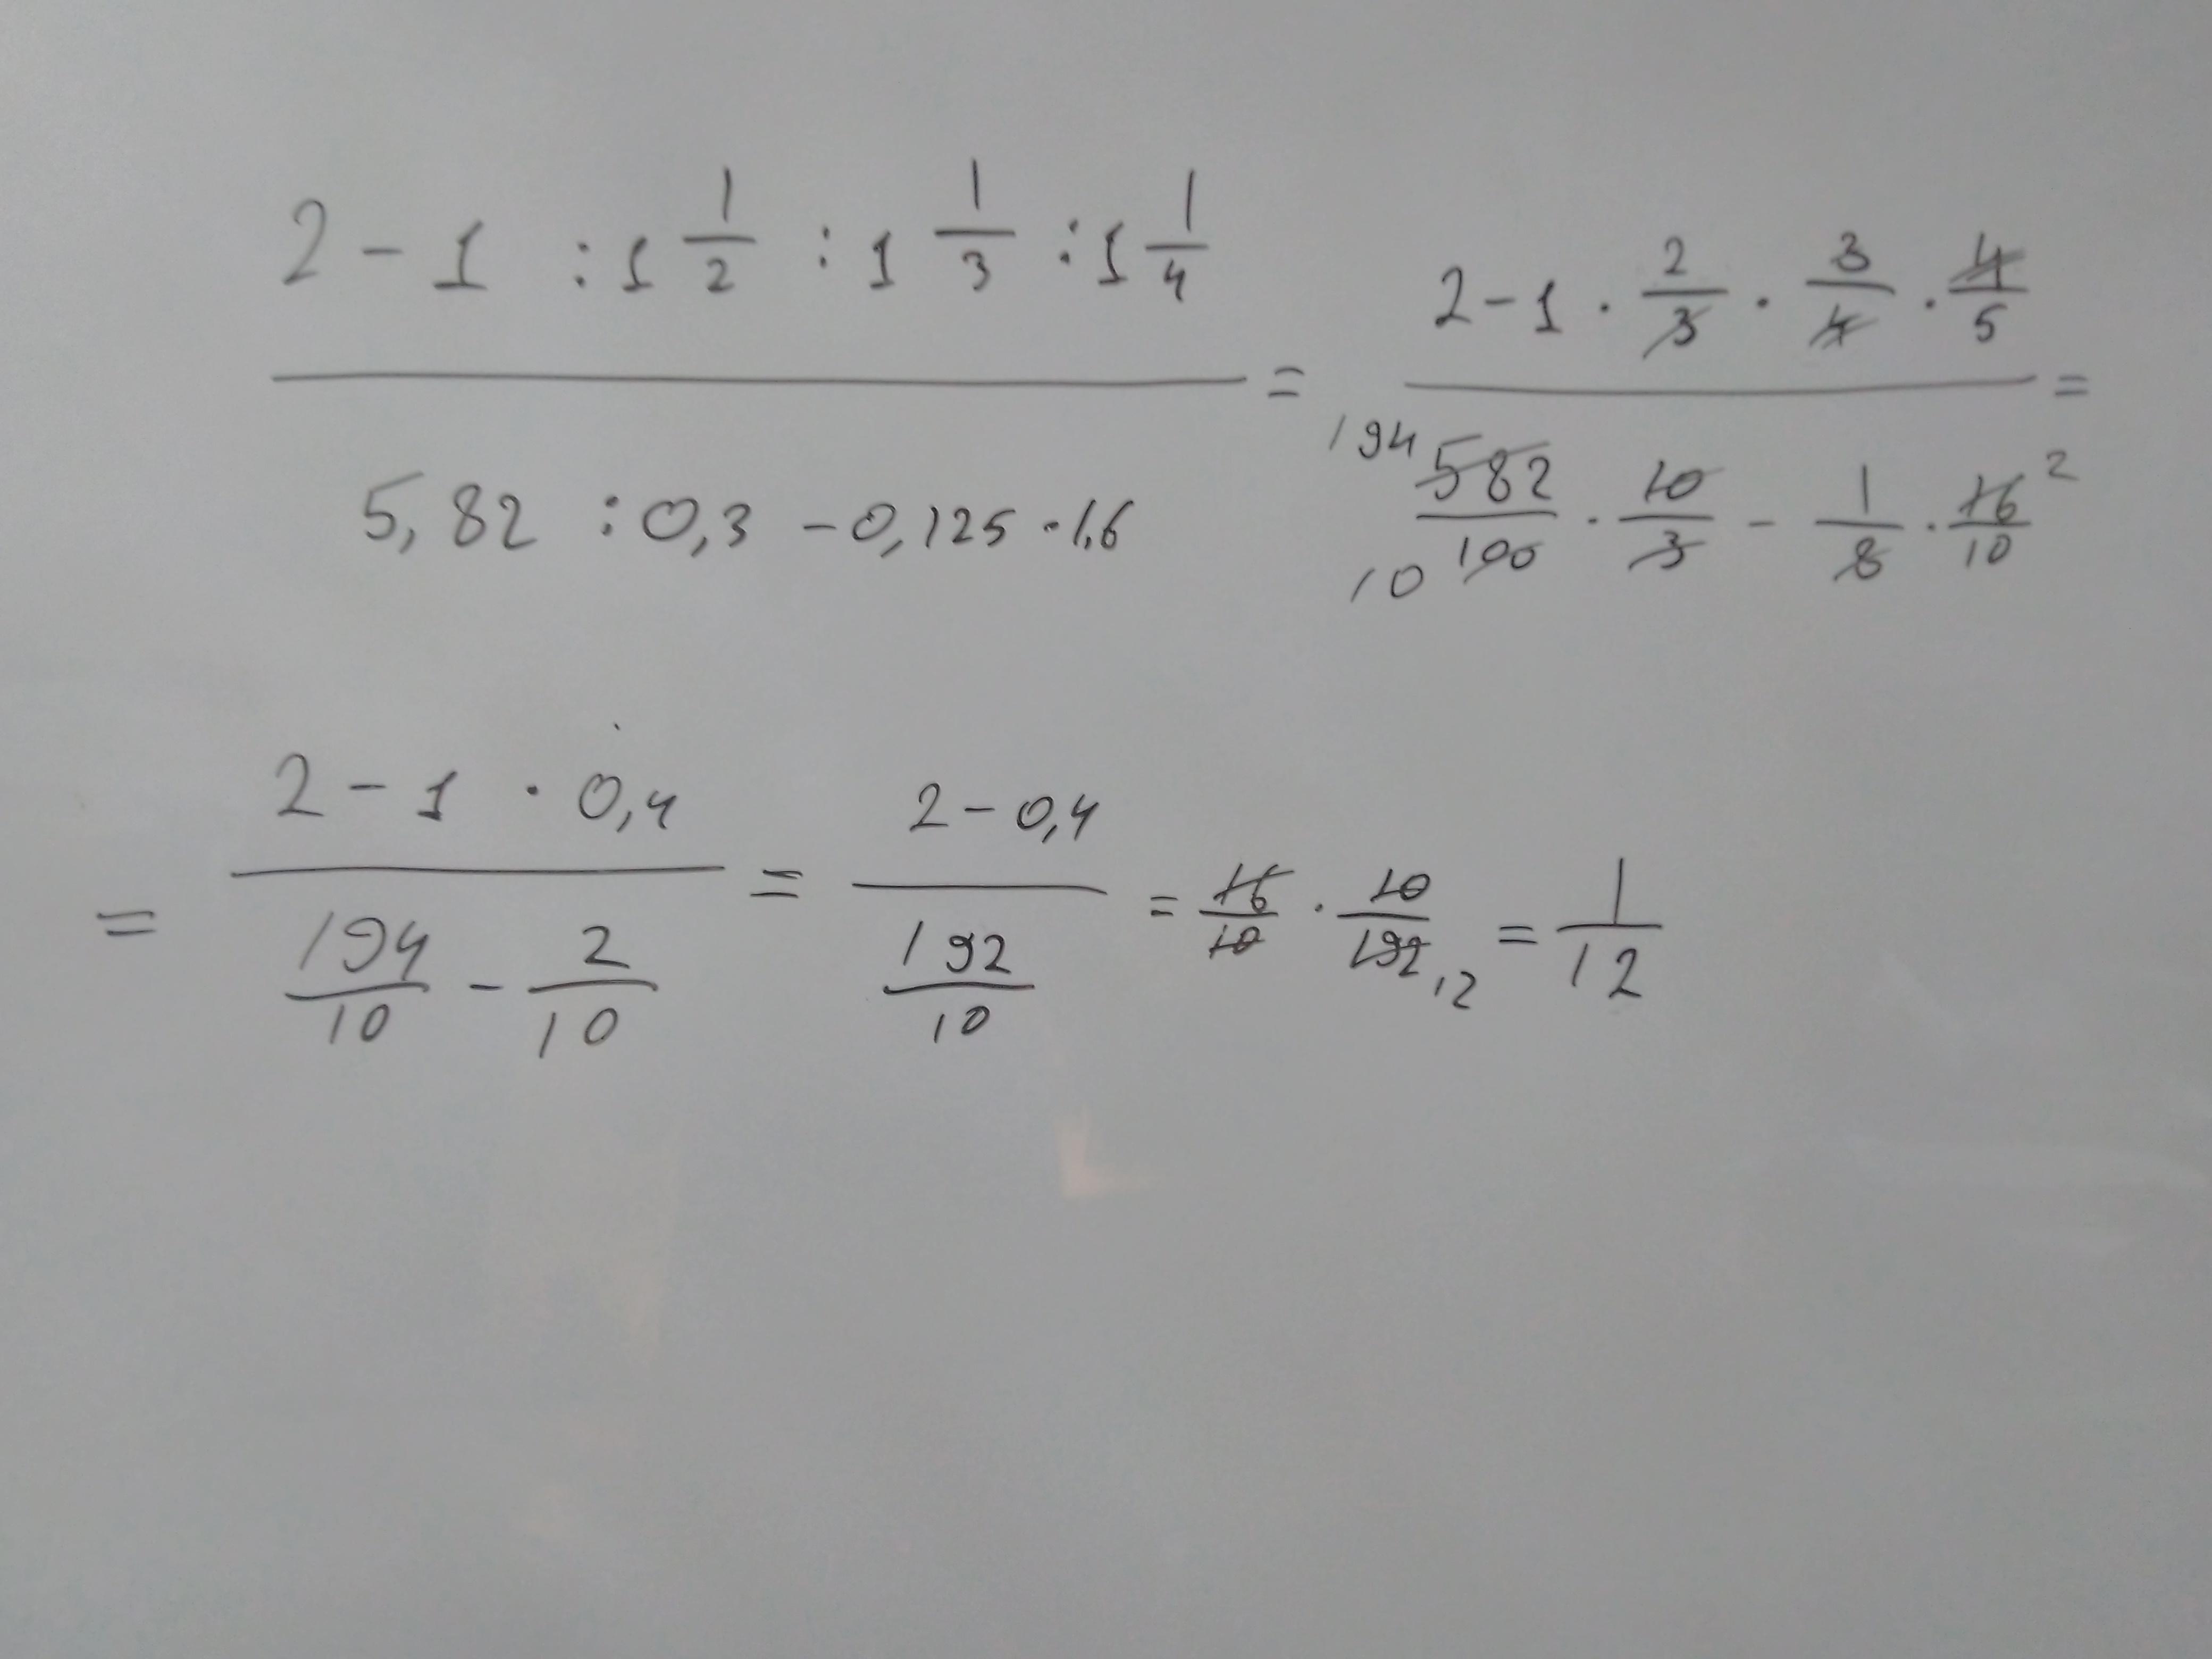 2 - 1 : 1 1/2 : 1 1/3 : 1 1/4 / 5,82 : 0,3 - 0,125 · 1,6 = 2 - 1 · 2/3 · 3/4 · 4/5 / 194 582/100 10 · 10/3 - 1/8 · 16/10 2 =
= 2 - 1 · 0,4 / 194/10 - 2/10 = 2 - 0,4 / 192/10 = 16/10 · 10/192 12 = 1/12